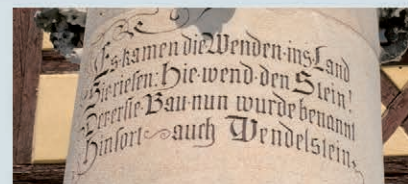 Es·kamen die Wenden·ins Land
Sie riefen: hie·wend·den Stein!
Der erste·Bau·nun wurde benannt
Hinfort auch Wendelstein.